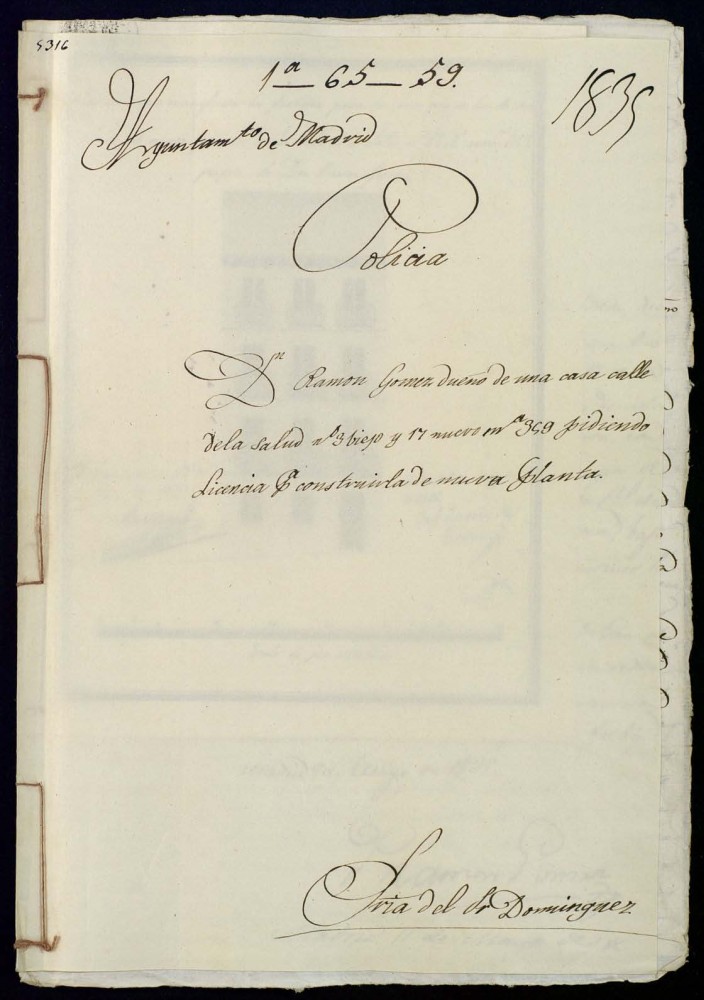 5316
1ª — 65 — 59.
1835
Ayuntamto de Madrid
Policia
Dn Ramon Gomez dueño de una casa calle
de la Salud nº 3 biejo y 17 nuevo mª 359 pidiendo
Licencia pª construirla de nueva planta.
Sria del Sr Dominguez